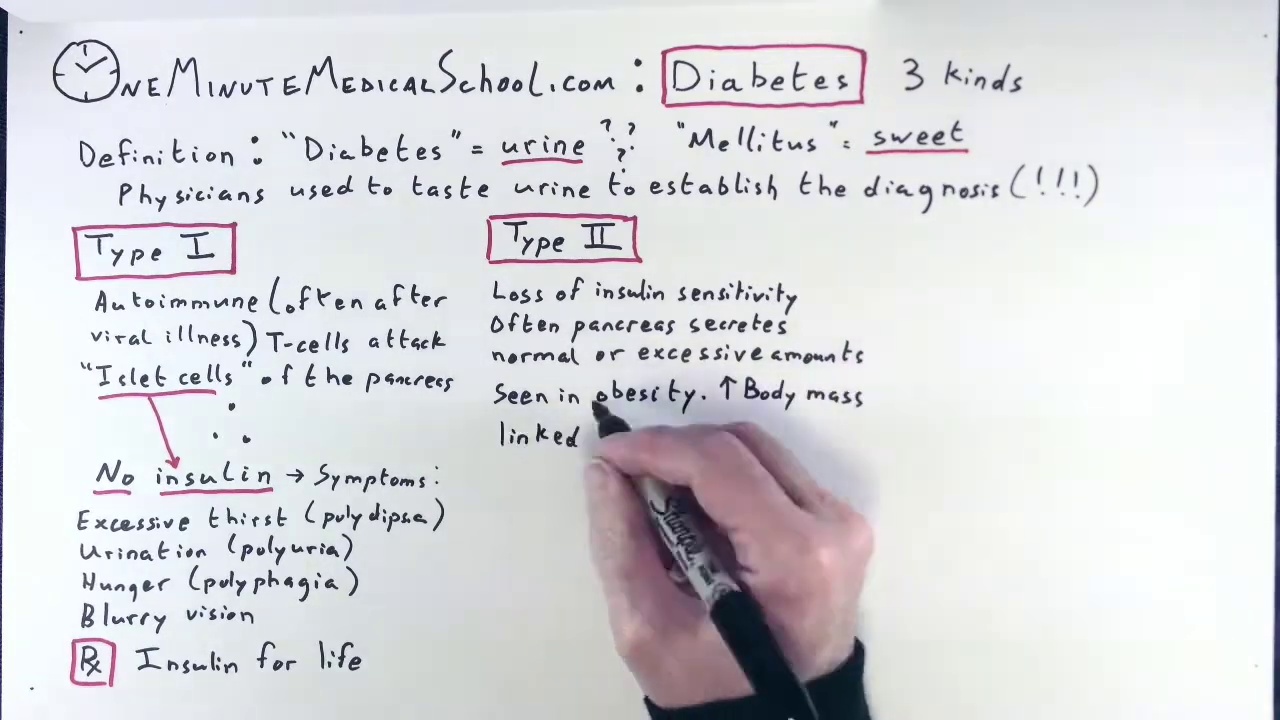 OneMinuteMedicalSchool.com : Diabetes 3 kinds
Definition : "Diabetes" = urine ? ? ? "Mellitus" = sweet
Physicians used to taste urine to establish the diagnosis (!!!)
Type I
Autoimmune (often after
viral illness) T-cells attack
"Islet cells" of the pancreas
No insulin → Symptoms:
Excessive thirst (polydipsa)
Urination (polyuria)
Hunger (polyphagia)
Blurry vision
Rx Insulin for life
Type II
Loss of insulin sensitivity
Often pancreas secretes
normal or excessive amounts
Seen in obesity. ↑ Body mass
linked
Sharpie